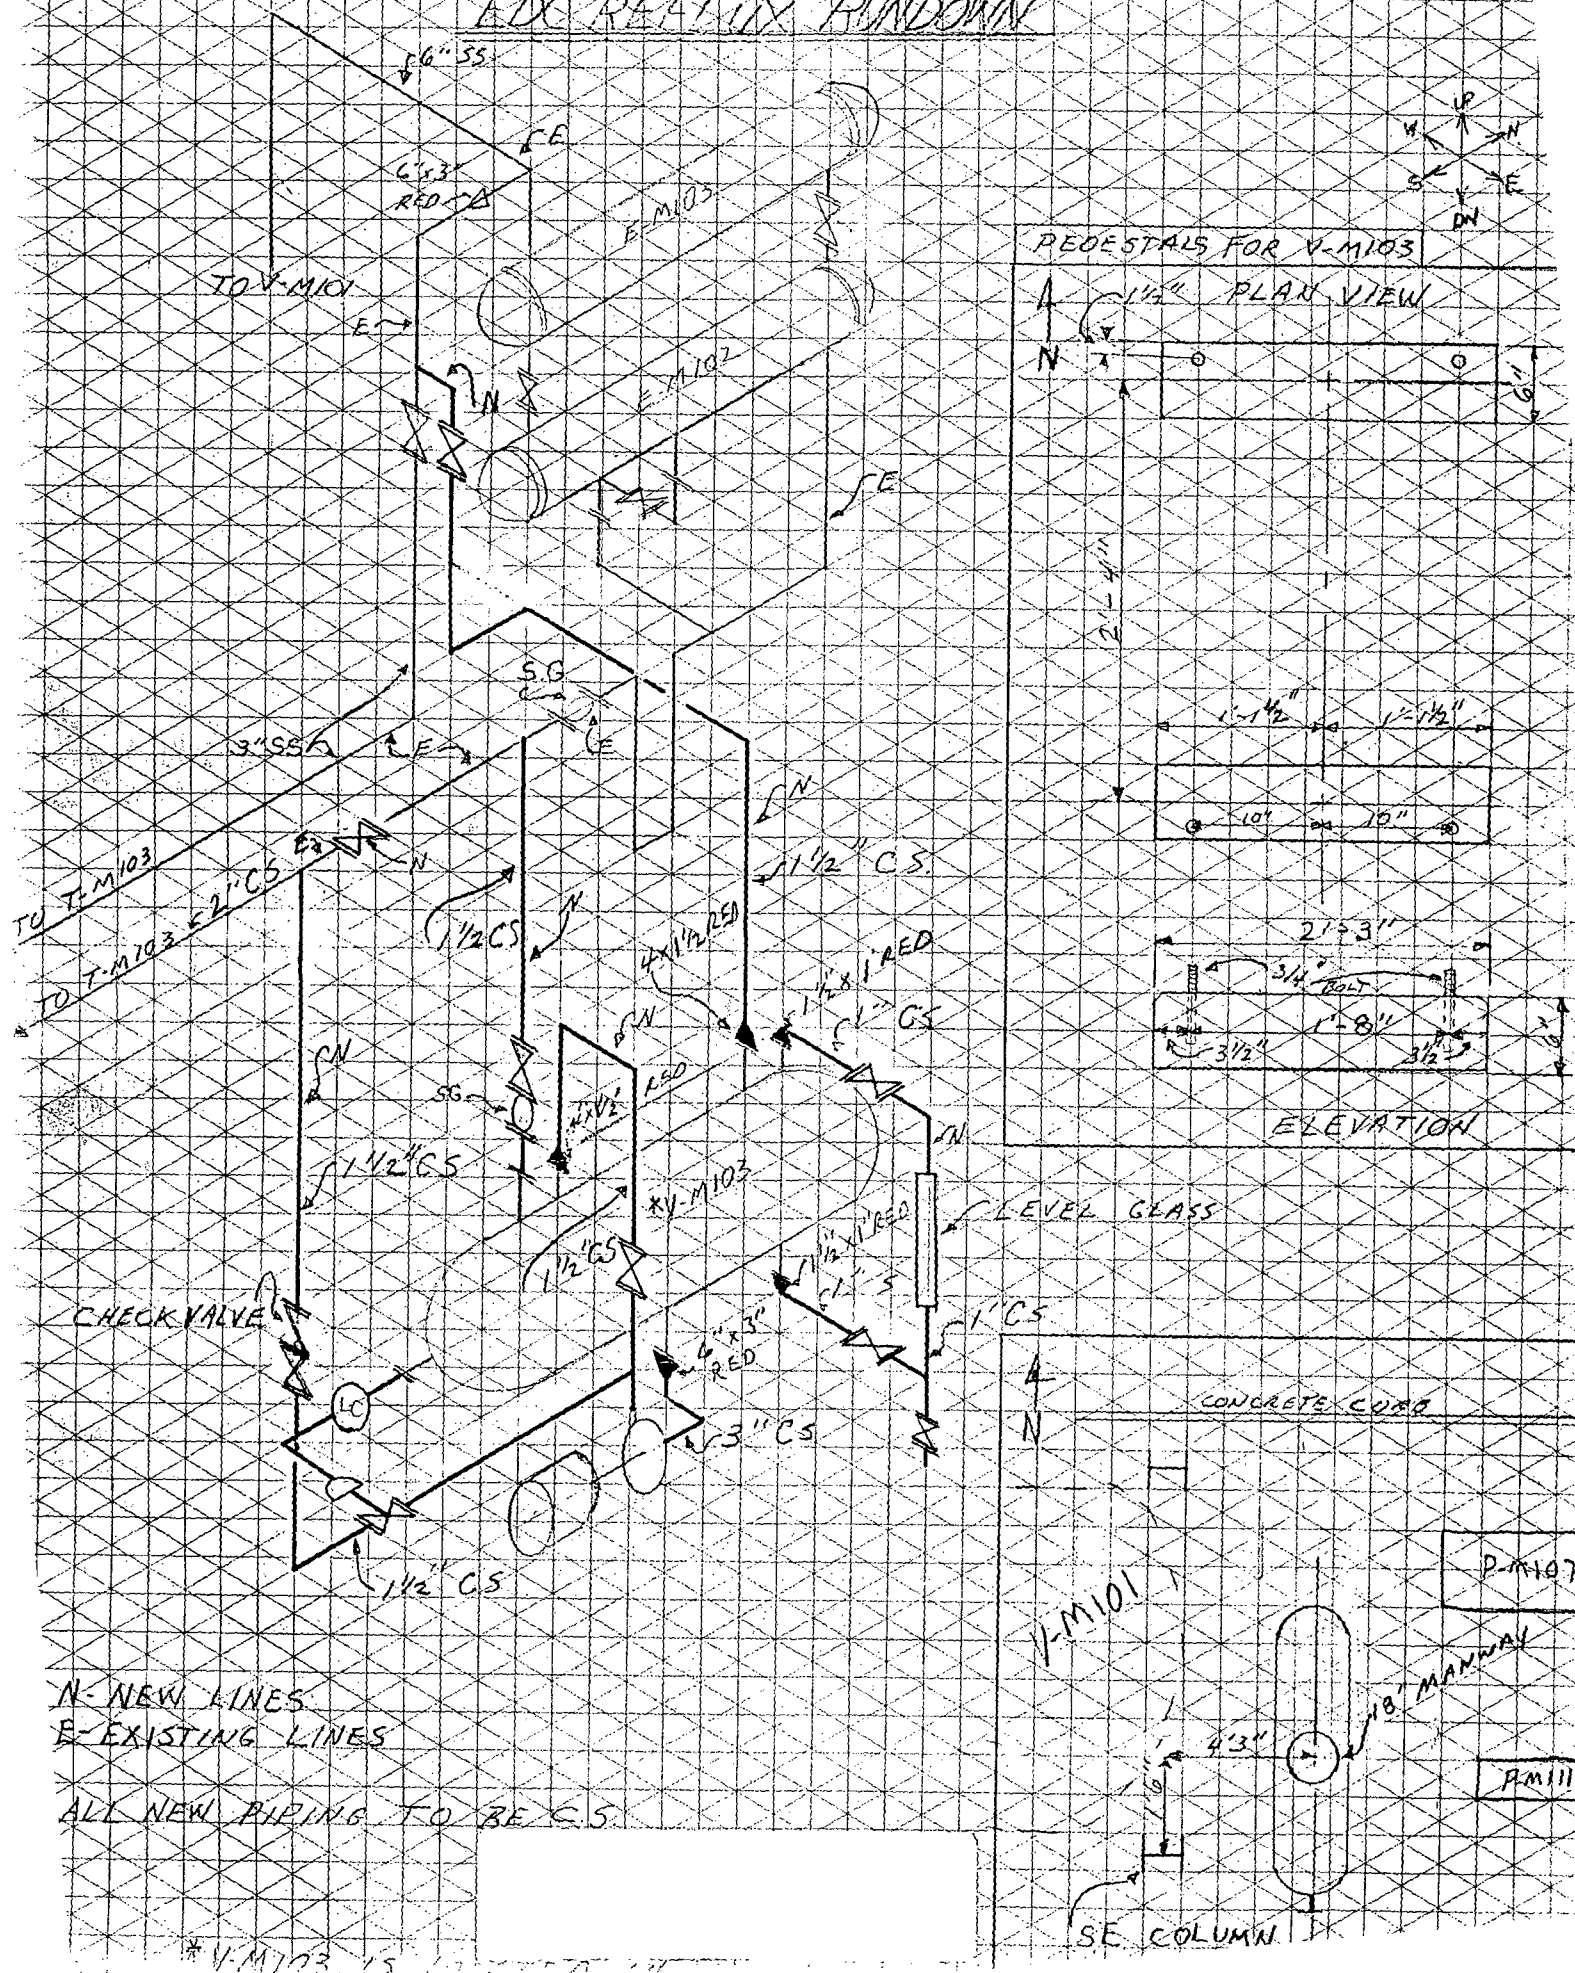 RUNDOWN
6" SS
E
6"x3"
RED
E-M103
TO V-M101
E
N
E-M102
E
S.G
E
3" SS
E
N
N
TO T-M103
TO T-M103
2" CS
1 1/2 CS
N
1 1/2" CS.
4x1 1/2 RED
1 1/2 x 1 RED
1" CS
N
N
SG
RED
N
1 1/2" CS
*V-M103
LEVEL GLASS
1 1/2" CS
1 1/2 x 1" RED
CHECK VALVE
1" CS
RED
LC
3" CS
1 1/2" CS
N- NEW LINES
E- EXISTING LINES
ALL NEW PIPING TO BE C.S.
* V-M103 IS
UP
W
N
S
E
DN
PEDESTALS FOR V-M103
PLAN VIEW
1 1/2"
N
6"
2'-4"
1'-1 1/2"
1'-1 1/2"
10"
10"
2'-3"
3/4"
BOLT
1'-8"
6"
3 1/2"
3 1/2"
ELEVATION
CONCRETE CURB
N
P-M107
V-M101
18" MANWAY
4'3"
1'6"
P-M111
SE COLUMN